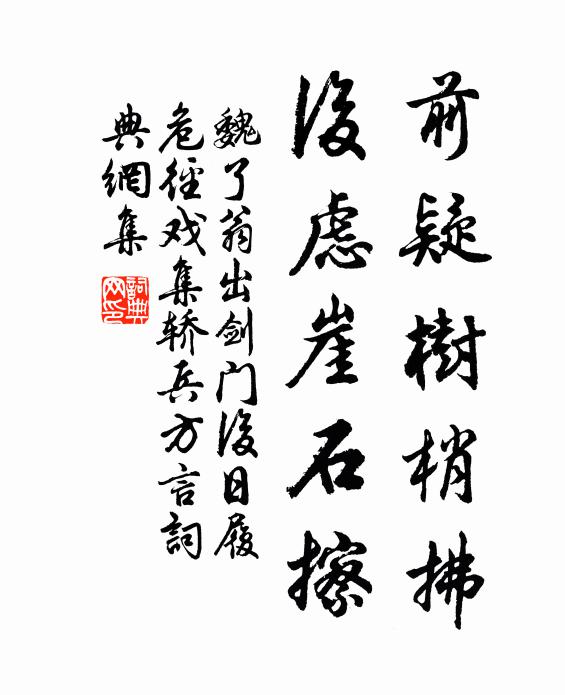 前疑樹梢拂
後慮崖石擦
魏了翁出剑门後日履
危徑戏集轿兵方言詞
典網集
詞典網印